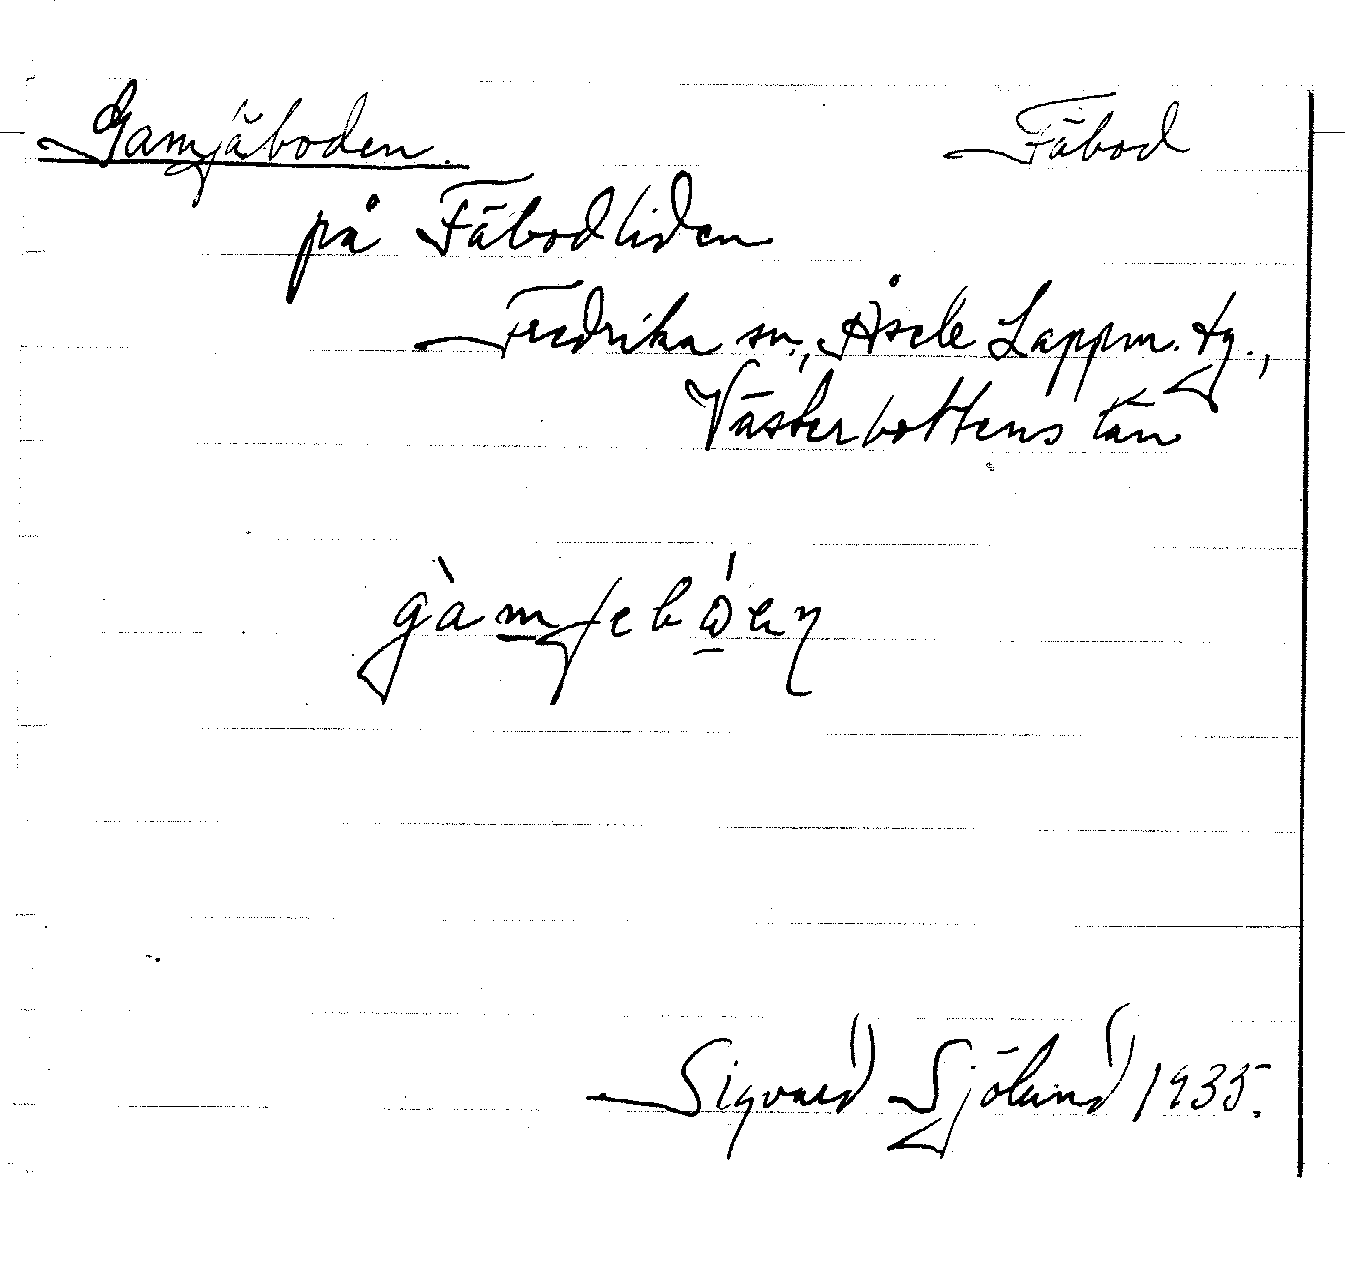 Gamjäboden. Fäbod
på Fäbodliden
Fredrika sn., Åsele Lappm. tg.,
Västerbottens län
Sigvard Sjölund 1935.